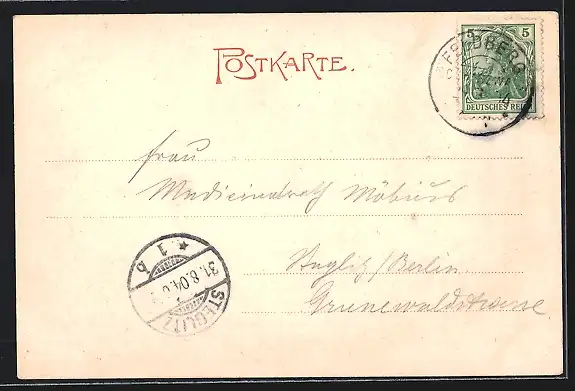 POSTKARTE.
5 5
FRIEDBERG
DEUTSCHES REICH
Frau
Medicinalrath Möbius
Steglitz/Berlin
Grunewaldstrasse
* 1 b
31.8.04.
STEGLITZ